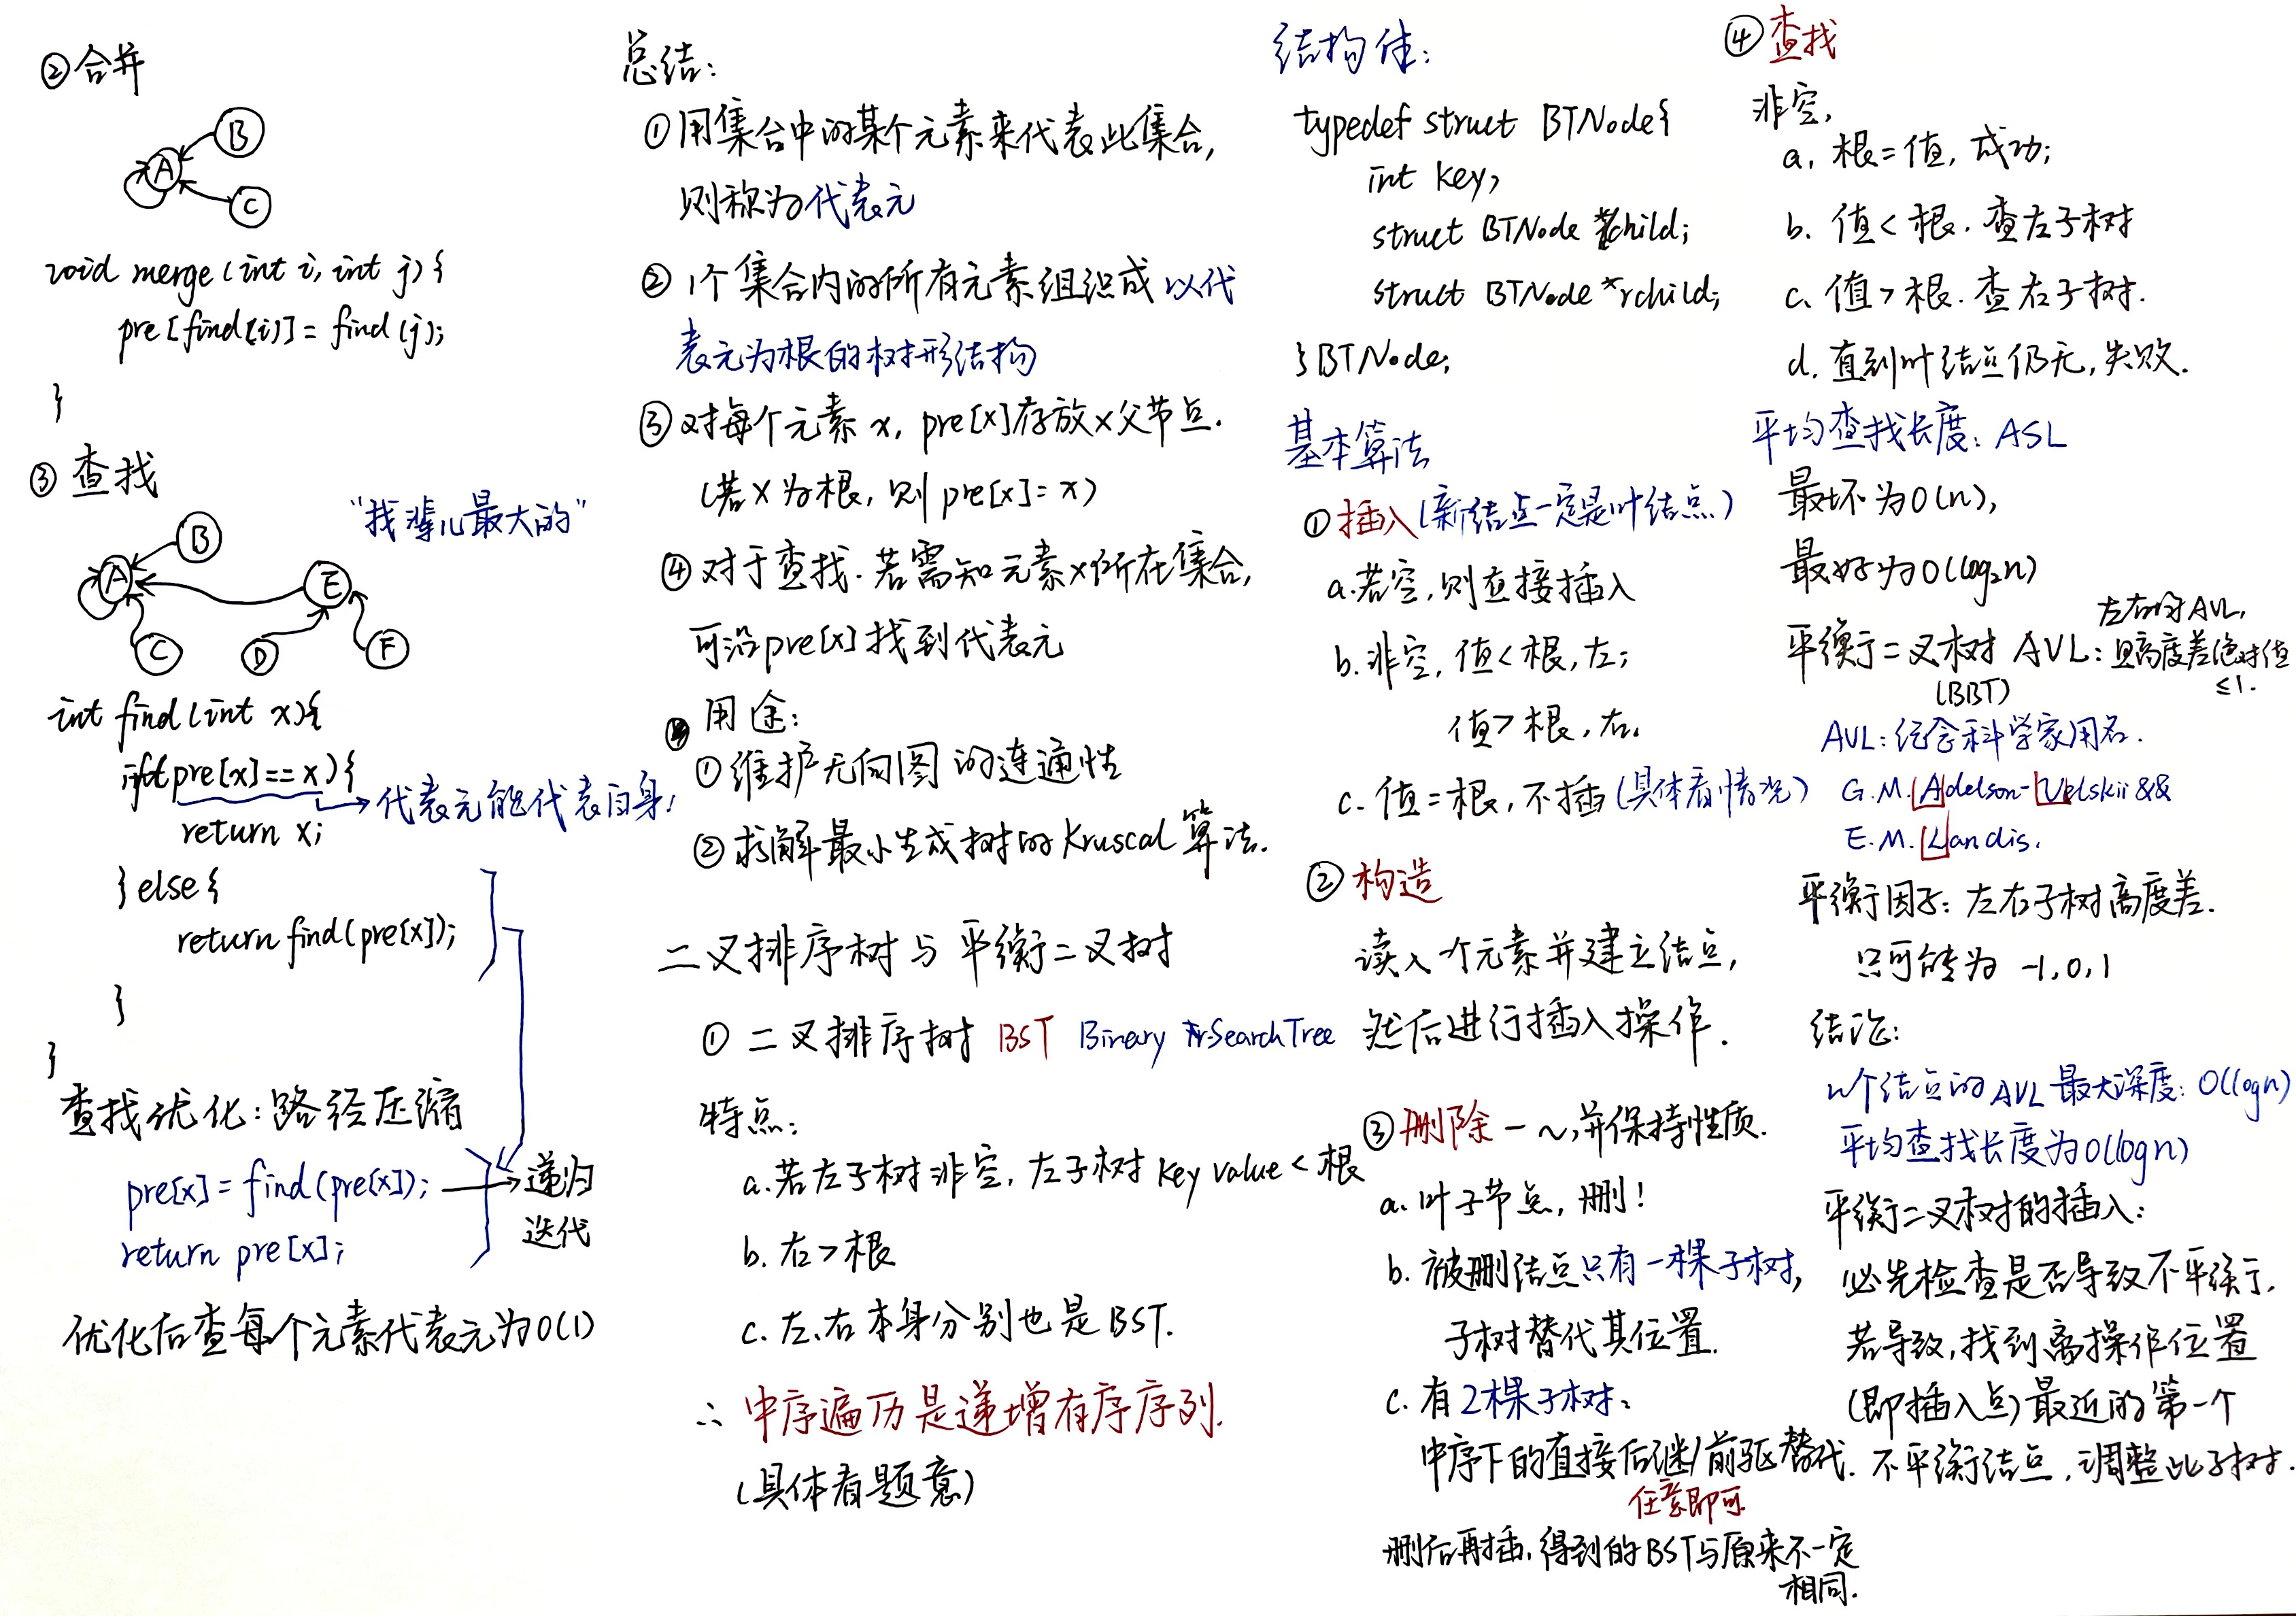 ②合并
B
A
C
void merge(int i, int j){
pre[find[i)]= find(j);
}
③ 查找
"找辈儿最大的"
B
A
E
C
D
F
int find(int x){
if(pre[x]==x){
→代表元能代表自身!
return x;
}else{
return find(pre[x]);
}
}
查找优化:路径压缩
pre[x]=find(pre[x]);
→递归
迭代
return pre[x];
优化后查每个元素代表元为O(1)
总结:
①用集合中的某个元素来代表此集合,
则称为代表元
② 1个集合内的所有元素组织成以代
表元为根的树形结构
③对每个元素x, pre[x]存放x父节点.
(若x为根,则pre[x]=x)
④对于查找.若需知元素x所在集合,
可沿pre[x]找到代表元
用途:
①维护无向图的连通性
②求解最小生成树的Kruscal算法.
二叉排序树与平衡二叉树
① 二叉排序树 BST Binary SearchTree
特点:
a.若左子树非空,左子树key value<根
b.右>根
c.左、右本身分别也是BST.
∴ 中序遍历是递增有序序列.
(具体看题意)
结构体:
typedef struct BTNode{
int key;
struct BTNode *child;
struct BTNode *rchild;
}BTNode;
基本算法
①插入(新结点一定是叶结点)
a.若空,则直接插入
b.非空,值<根,左;
值>根,右.
c.值=根,不插(具体看情况)
②构造
读入一个元素并建立结点,
然后进行插入操作.
③删除一~,并保持性质.
a.叶子节点,删!
b.被删结点只有一棵子树,
子树替代其位置.
c.有2棵子树:
中序下的直接后继/前驱替代.
任意即可
删后再插,得到的BST与原来不一定
相同.
④查找
非空,
a.根=值,成功;
b.值<根.查左子树
c.值>根.查右子树.
d.直到叶结点仍无,失败.
平均查找长度:ASL
最坏为O(n),
最好为O(log₂n)
左右均AVL,
平衡二叉树 AVL:且高度差绝对值
(BBT)
≤1.
AVL:纪念科学家用名.
G.M.Adelson-Velskii &&
E.M.Landis.
平衡因子:左右子树高度差.
只可能为 -1,0,1
结论:
n个结点的AVL最大深度:O(logn)
平均查找长度为O(logn)
平衡二叉树的插入:
必先检查是否导致不平衡.
若导致,找到离操作位置
(即插入点)最近的第一个
不平衡结点,调整此子树.